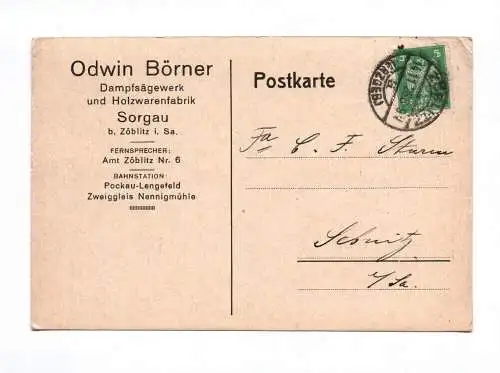 Odwin Börner
Dampfsägewerk
und Holzwarenfabrik
Sorgau
b. Zöblitz i. Sa.
FERNSPRECHER:
Amt Zöblitz Nr. 6
BAHNSTATION:
Pockau-Lengefeld
Zweiggleis Nennigmühle
Postkarte
5
Fa C. F. Sturm
Sebnitz
i/Sa.